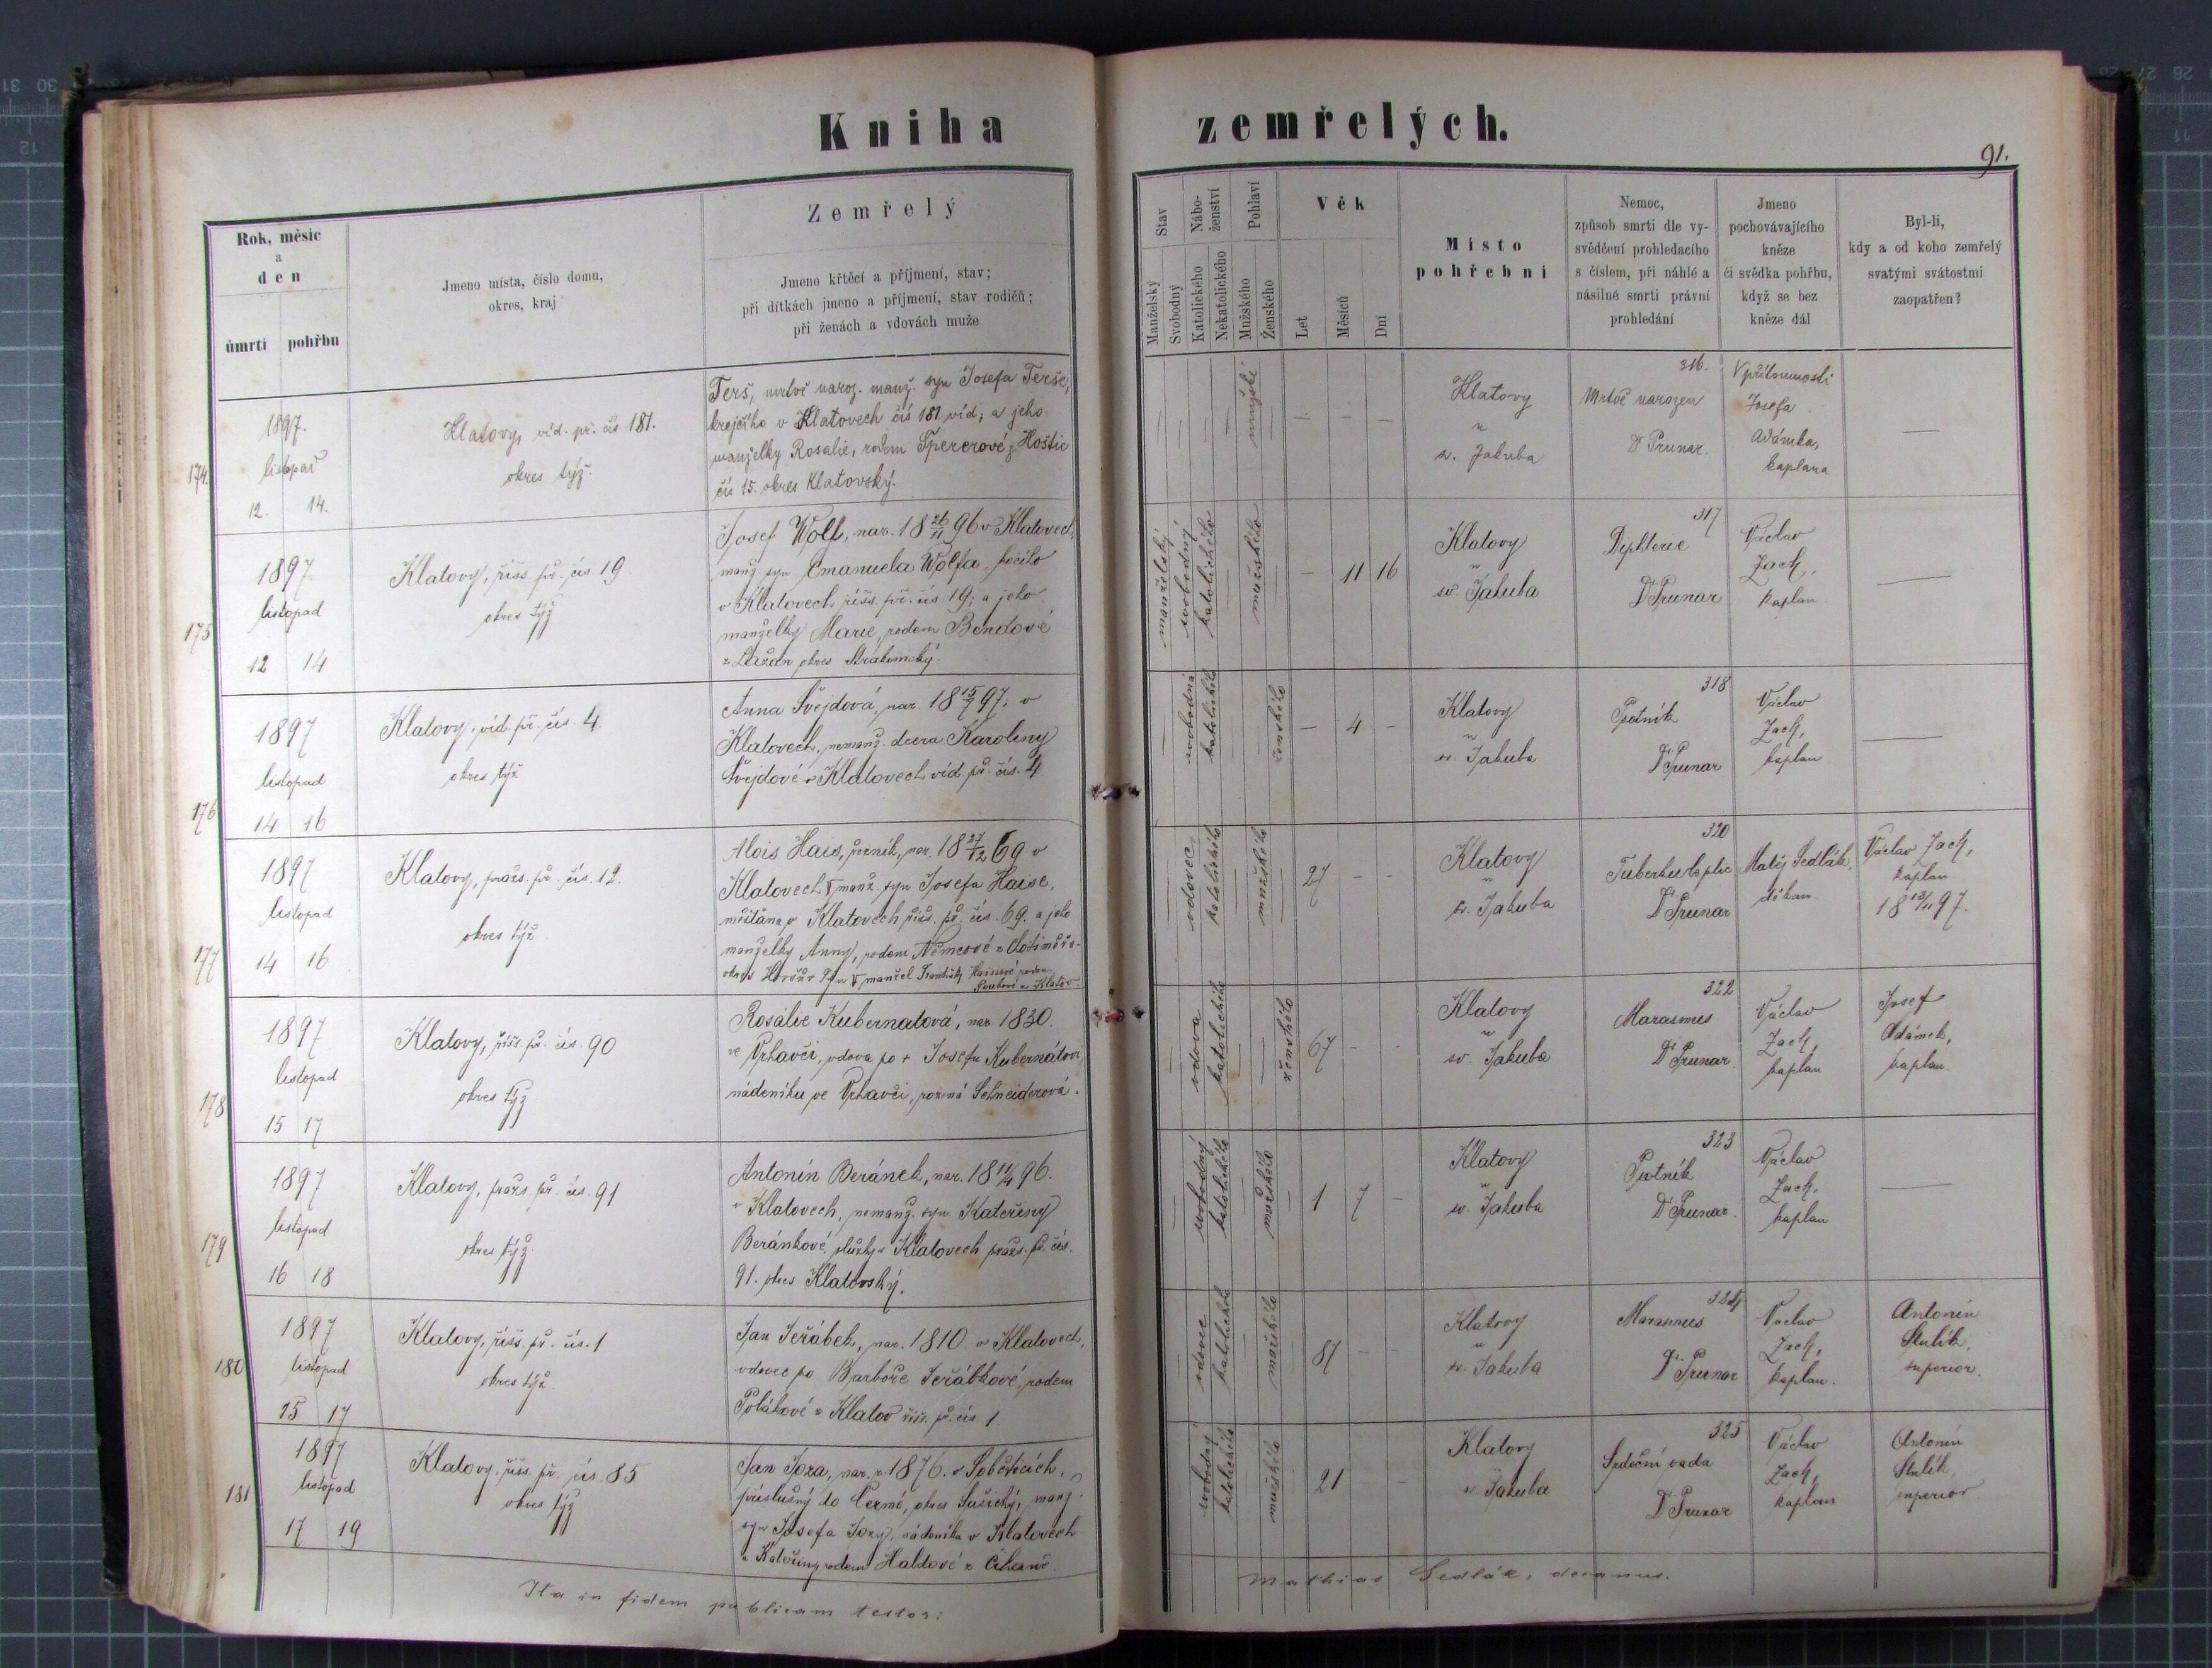 Kniha zemřelých.
91.
Rok, měsíc
a
den
úmrtí pohřbu
Jmeno místa, číslo domu,
okres, kraj
Zemřelý
Jmeno křtěcí a příjmení, stav;
při dítkách jmeno a příjmení, stav rodičů;
při ženách a vdovách muže
Stav
Manželský
Svobodný
Nábo-
ženství
Katolického
Nekatolického
Pohlaví
Mužského
Ženského
Věk
Let
Měsíců
Dní
Místo
pohřební
Nemoc,
způsob smrti dle vy-
svědčení prohledacího
s číslem, při náhlé a
násilné smrti právní
prohledání
Jmeno
pochovávajícího
kněze
či svědka pohřbu,
když se bez
kněze dál
Byl-li,
kdy a od koho zemřelý
svatými svátostmi
zaopatřen?
174.
1897.
listopad
12. 14.
Klatovy, víd. př. čís 181.
okres týž.
Terš, mrtvě naroz. manž. syn Josefa Terše,
krejčího v Klatovech čís 181 víd, a jeho
manželky Rosalie, rodem Špererové z Hoštic
čís 15. okres Klatovský.
mužské
Klatovy
u
sv. Jakuba
316.
Mrtvě narozen
Dr Prunar.
V přítomnosti
Josefa
Adámka,
kaplana
175
1897
listopad
12 14
Klatovy, říšs. př. čís 19
okres týž
Josef Wolf, nar. 18 26/11 96 v Klatovech,
manž. syn Emanuela Wolfa,
v Klatovech říšs. př. čís. 19; a jeho
manželky Marie, rodem Bendové
z Lažan okres Strakonický.
manželský
svobodný
katolického
mužského
11 16
Klatovy
u
sv. Jakuba
317
Dr Prunar
Václav
Zach,
kaplan
176
1897
listopad
14 16
Klatovy, víd. př. čís. 4
okres týž
Anna Švejdová, nar. 18 15/7 97. v
Klatovech, nemanž. dcera Karoliny
Švejdové v Klatovech víd. př. čís. 4
svobodná
katolického
ženského
4
Klatovy
u
sv. Jakuba
318
Psotník
Dr Prunar
Václav
Zach,
kaplan
177
1897
listopad
14 16
Klatovy, pražs. př. čís. 12.
okres týž
Alois Hais, řezník, nar. 18 27/12 69 v
Klatovech manž. syn Josefa Haise,
měšťana v Klatovech říšs. př. čís. 69. a jeho
manželky Anny, rodem Němcové z
okres Horšův Týn manžel Františky Haisové rodem
z Klatov
vdovec
katolického
mužského
27
Klatovy
u
sv. Jakuba
320
Dr Prunar
Matěj Sedlák,
děkan
Václav Zach,
kaplan
18 13/11 97.
178
1897
listopad
15 17
Klatovy, říšs. př. čís. 90
okres týž
Rosálie Kubernatová, nar. 1830.
ve Vrhavči, vdova po † Josefu Kubernátovi,
nádeníku ve Vrhavči, rozená Schneiderová.
vdova
katolického
ženského
67
Klatovy
u
sv. Jakuba
322
Marasmus
Dr Prunar
Václav
Zach,
kaplan
Josef
Adámek,
kaplan.
179
1897
listopad
16 18
Klatovy, pražs. př. čís. 91
okres týž
Antonín Beránek, nar. 18 11/4 96.
v Klatovech, nemanž. syn Kateřiny
Beránkové, služky v Klatovech pražs. př. čís.
91. okres Klatovský.
svobodný
katolického
mužského
1 7
Klatovy
u
sv. Jakuba
323
Psotník
Dr Prunar.
Václav
Zach,
kaplan
180
1897
listopad
15 17
Klatovy, říšs. př. čís. 1
okres týž
Jan Jeřábek, nar. 1810 v Klatovech,
vdovec po Barboře Jeřábkové, rodem
Polákové z Klatov říšs. př. čís 1.
vdovec
katolického
mužského
87
Klatovy
u
sv. Jakuba
324
Marasmus
Dr Prunar
Václav
Zach,
kaplan.
Antonín
Stulík,
superior.
181
1897
listopad
17 19
Klatovy. říšs. př. čís. 85
okres týž
Jan Joza, nar. r. 1876. v Soběticích,
příslušný do Čermé, okres Sušický, manž.
syn Josefa Jozy, nádeníka v Klatovech
a Kateřiny rodem Haldové z Čihaně.
svobodný
katolického
mužského
21
Klatovy
sv Jakuba
325
Srdeční vada
Dr Prunar
Václav
Zach,
kaplan
Antonín
Stulík,
superior
Ita in fidem publicam testor: Mathias Sedlák, decanus.